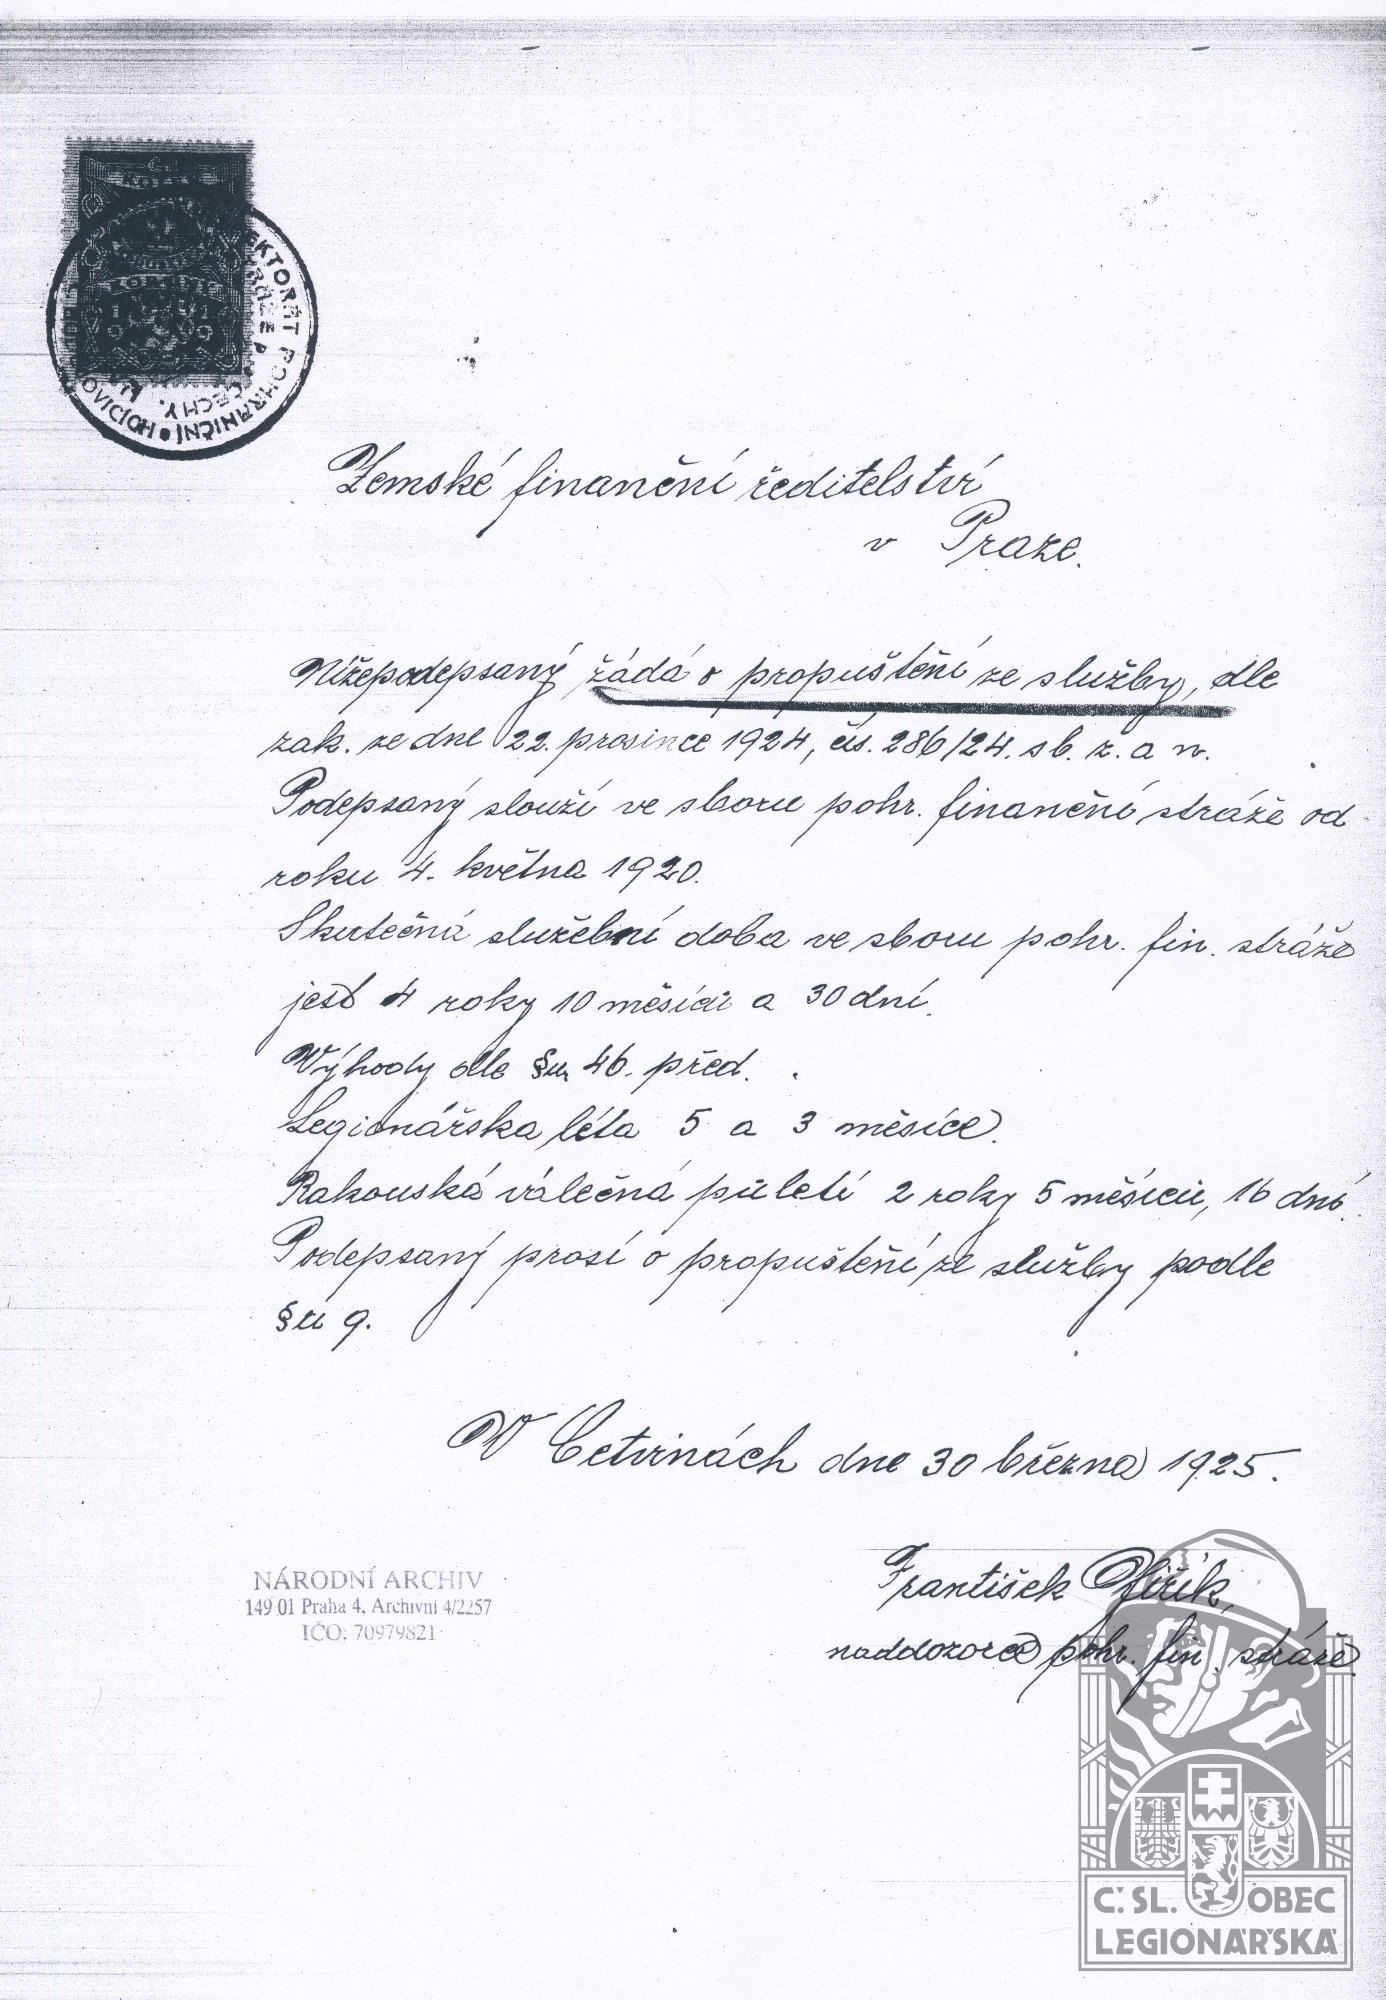 KOLEK
EKTORÁT POHRANIČNÍ
OVICÍCH
ČECHY.
Zemské finanční ředitelství
v Praze.
Nížepodepsaný žádá o propuštění ze služby, dle
zak. ze dne 22. prosince 1924, čís. 286/24. sb. z. a n.
Podepsaný slouží ve sboru pohr. finanční stráže od
roku 4. května 1920.
Skutečná služební doba ve sboru pohr. fin. stráže
jest 4 roky 10 měsíců a 30 dní.
Výhody dle §u 46. před.
Legionářska léta 5 a 3 měsíce.
Rakouská válečná půletí 2 roky 5 měsíců, 16 dní.
Podepsaný prosí o propuštění ze služby podle
§u 9.
V Cetvinách dne 30 března 1925.
František
naddozorce pohr. fin. stráže.
NÁRODNÍ ARCHIV
149 01 Praha 4, Archivní 4/2257
IČO: 70979821
Č. SL. OBEC
LEGIONÁŘSKÁ